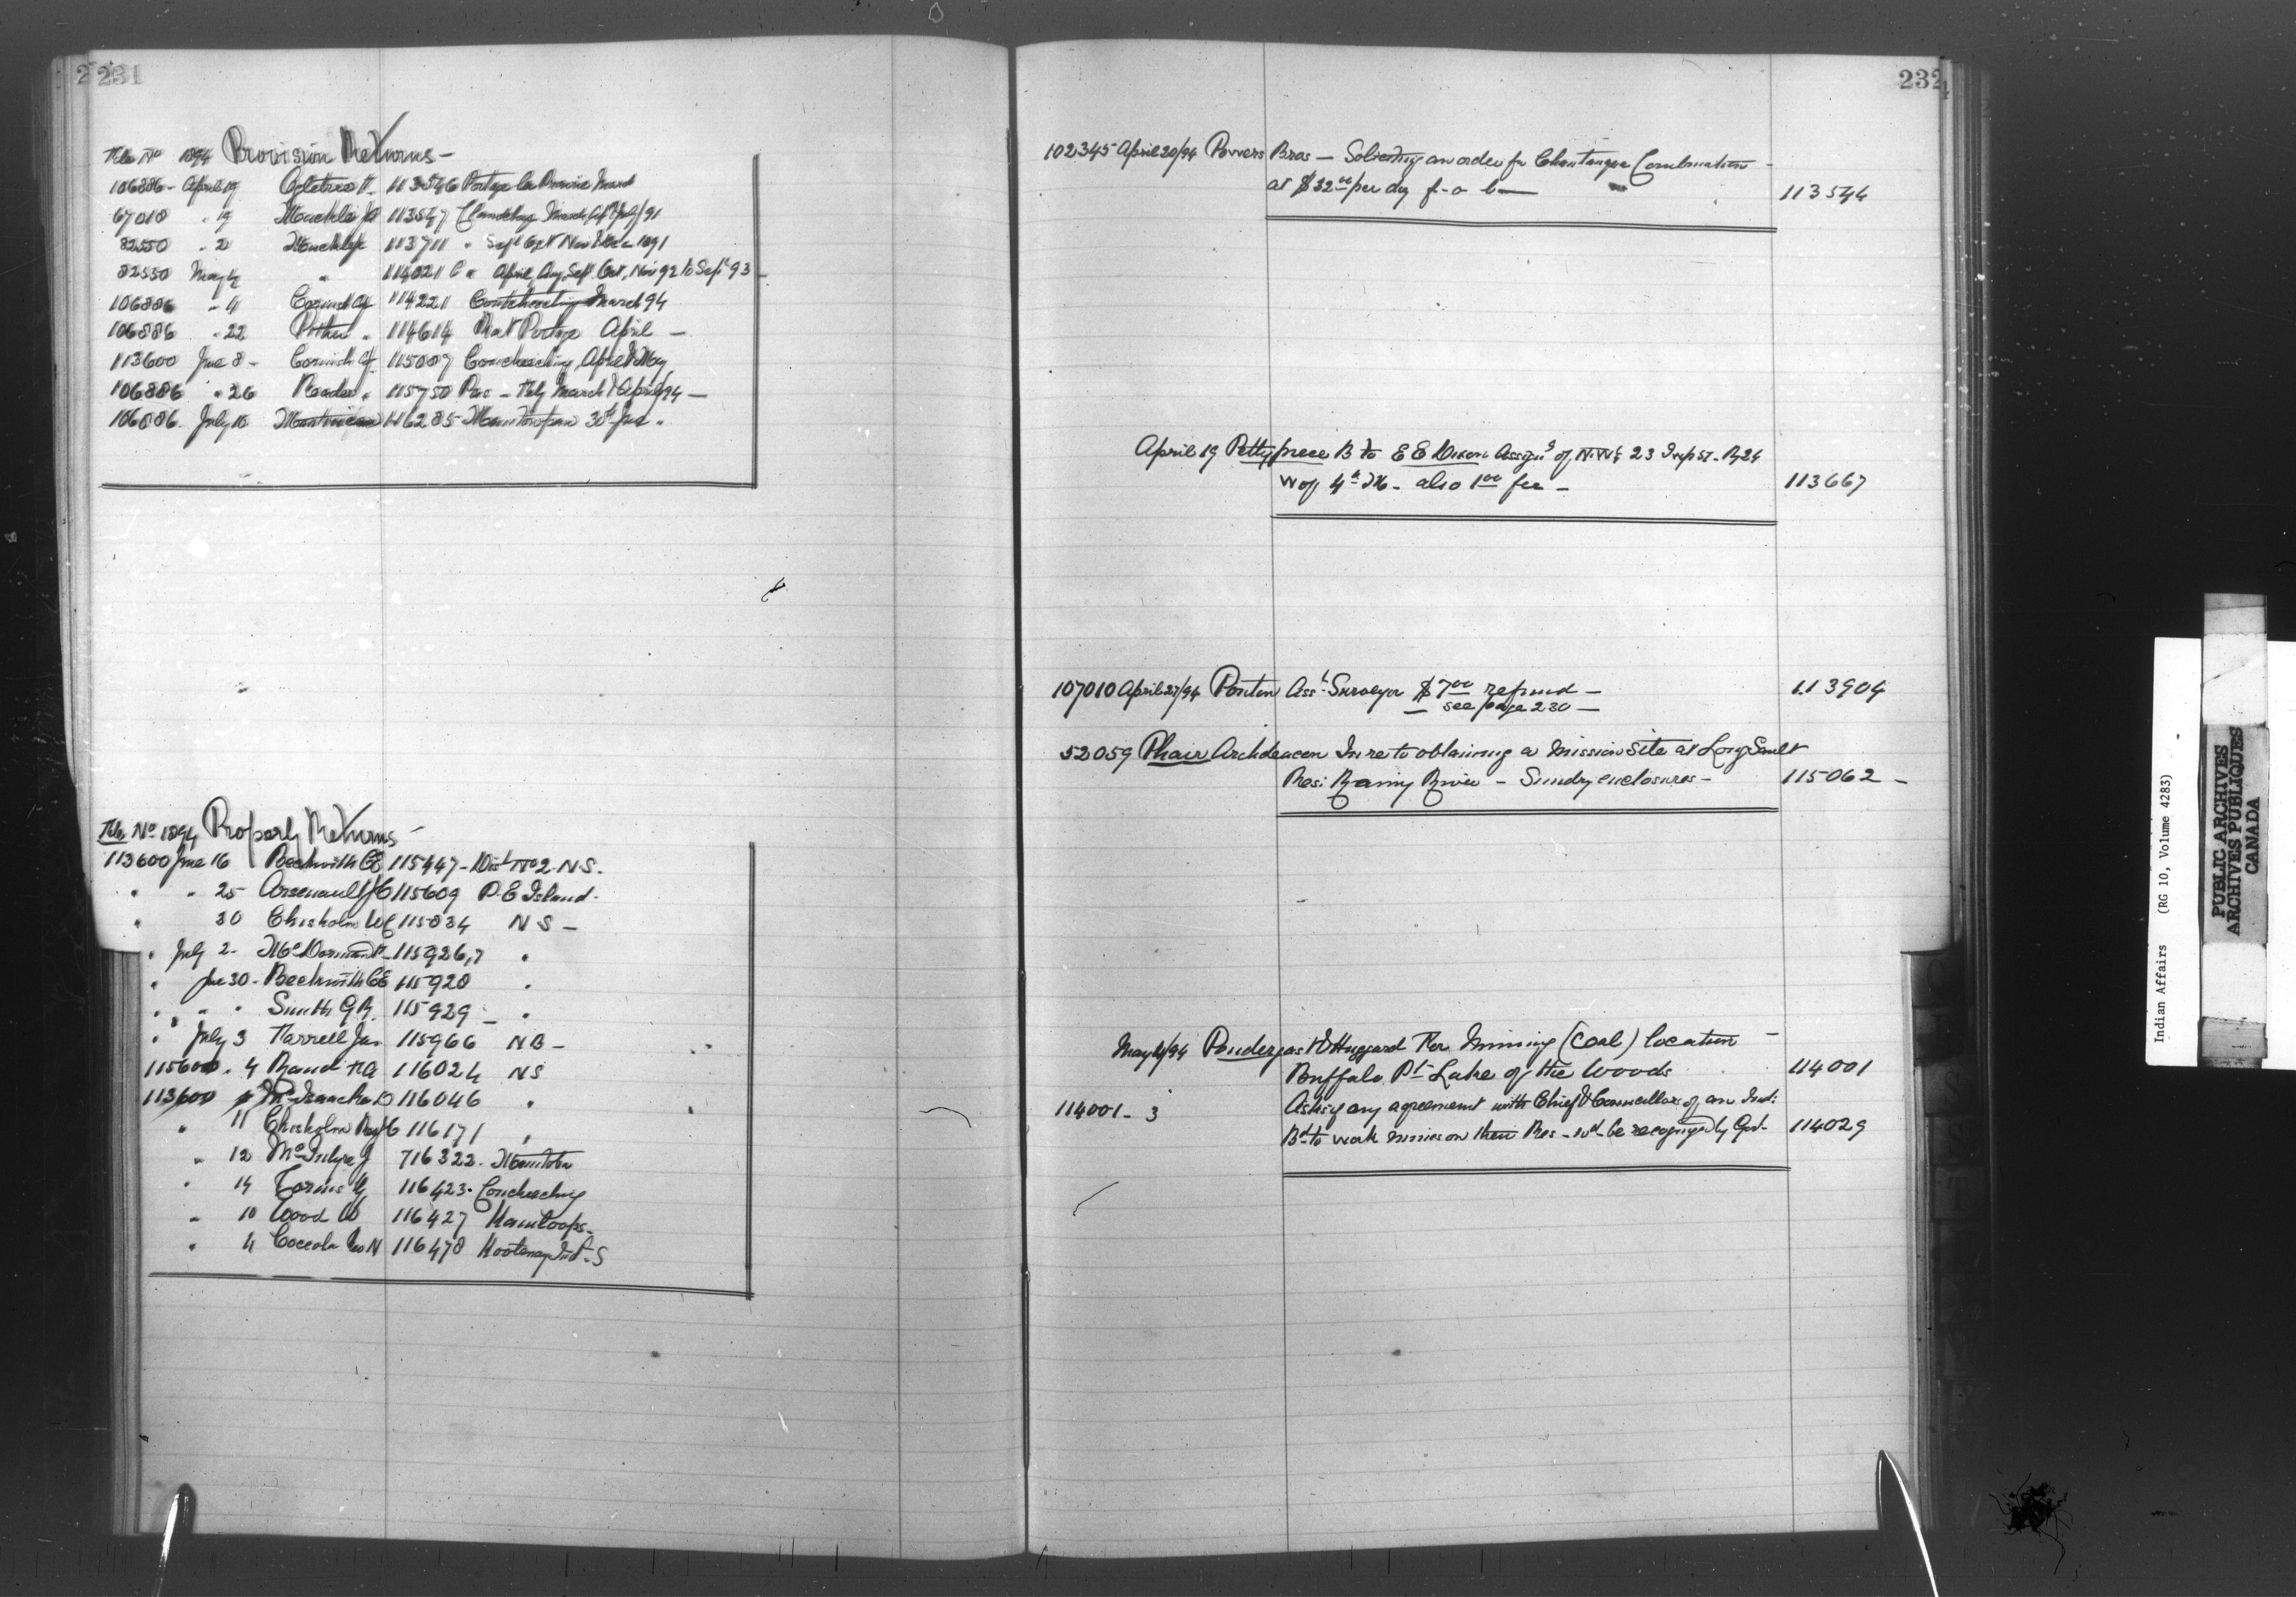 231
File No 1894 Provision Returns -
106886 - April 19 Ogletree F. 113546 Portage la Prairie March
67018 " 19 113547 Clandeboye March, 91
82550 " 2 113711 " Sept Oct Nov & Dec 1891
82550 May 4 " 114021 C " April, Aug, Sept. Oct, Nov 92 to Sept 93 -
106886 " 11 Cornish 114221 Coutcheeching March 94
106886 " 22 Pither " 114614 Rat Portage April -
113600 June 8 - Cornish 115009 Coucheeching April & May
106886 " 26 Reader " 115750 Pas - March & April/94 -
106886. July 10 Martineau 116285 30th June.
File No 1894 Property Returns -
113600 June 16 Beckwith CE 115447 - Dist No 2 N.S.
" " 25 Arsenault JC 115609 P.E Island.
" 30 Chisholm WC 115834 N S -
" July 2 - McDormand 115926,7 "
" June 30 - Beckwith CE 115928 "
" " " Smith G R. 115929 - "
" July 3 Farrell Jas 115966 N B -
115600 " 4 Rand FA 116024 N S
113600 McIsaac 116046 "
" 11 Chisholm 116171 "
" 12 McIntyre J 716322. Manitoba
" 14 116423. Coucheeching
" 10 Wood W 116427 Kamloops -
" 4 Coccola Rev N 116478 Kootenay Ind. S
232
102345 April 20/94 Powers Bros - Soliciting an order for Chautauqua Combination -
at $32.00 per doz f - o - b - 113544
April 19 Pettypiece B to E E Dixon Assign't of N.W¼ 23 Twp 52 - R 24
W of 4th M - also 1.00 fee - 113667
107010 April 27/94 Ponton Asst. Surveyor $7.00 refund - 113904
- see page 230 -
52059 Phair Archdeacon In re to obtaining a Mission Site at Long Sault
Res: Rainy River - Sundry enclosures - 115062 -
May 4/94 Pendergast & Huggard For Mining (Coal) location -
Buffalo Pt - Lake of the Woods 114001
114001 - 3 Ask if any agreement with Chief & Councillors of an Ind:
Bd to work mines on their Res - wd be recognized by Govt - 114029
Indian Affairs (RG 10, Volume 4283)
PUBLIC ARCHIVES
ARCHIVES PUBLIQUES
CANADA